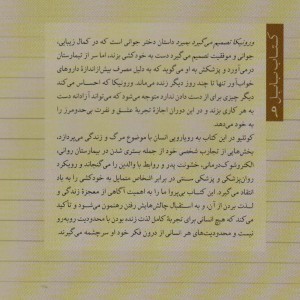 ورونیکا تصمیم می‌گیرد بمیرد داستان دختر جوانی است که در کمال زیبایی،
جوانی و موفقیت تصمیم می‌گیرد دست به خودکشی بزند، اما سر از تیمارستان
درمی‌آورد و پزشکش به او می‌گوید که به دلیل مصرف بیش‌ازاندازهٔ داروهای
خواب‌آور تنها تا چند روز دیگر زنده می‌ماند. ورونیکا که احساس می‌کند
دیگر چیزی برای از دست دادن ندارد متوجه می‌شود که می‌تواند آزادانه دست
به هر کاری بزند و در این دوران اجازهٔ تجربهٔ عشق و نفرت بی‌حدومرز را
به خود می‌دهد.
کوئلیو در این کتاب به رویارویی انسان با موضوع مرگ و زندگی می‌پردازد.
بخش‌هایی از تجارب شخصی خود از جمله بستری شدن در بیمارستان روانی،
الکتروشوک‌درمانی، خشونت پدر و روابط با والدین را می‌گنجاند و رویکرد
روان‌پزشکی و پزشکی سنتی در برابر اشخاص متمایل به خودکشی را به باد
انتقاد می‌گیرد. این کتاب بی‌پروا ما را به اهمیت آگاهی از معجزهٔ زندگی و
لذت بردن از آن، و به استقبال چالش‌هایش رفتن رهنمون می‌شود و تأکید
می‌کند که هیچ انسانی برای تجربهٔ کامل لذت زنده بودن با محدودیت روبه‌رو
نیست و محدودیت‌های هر انسانی از درون فکر خود او سرچشمه می‌گیرند.
کتاب